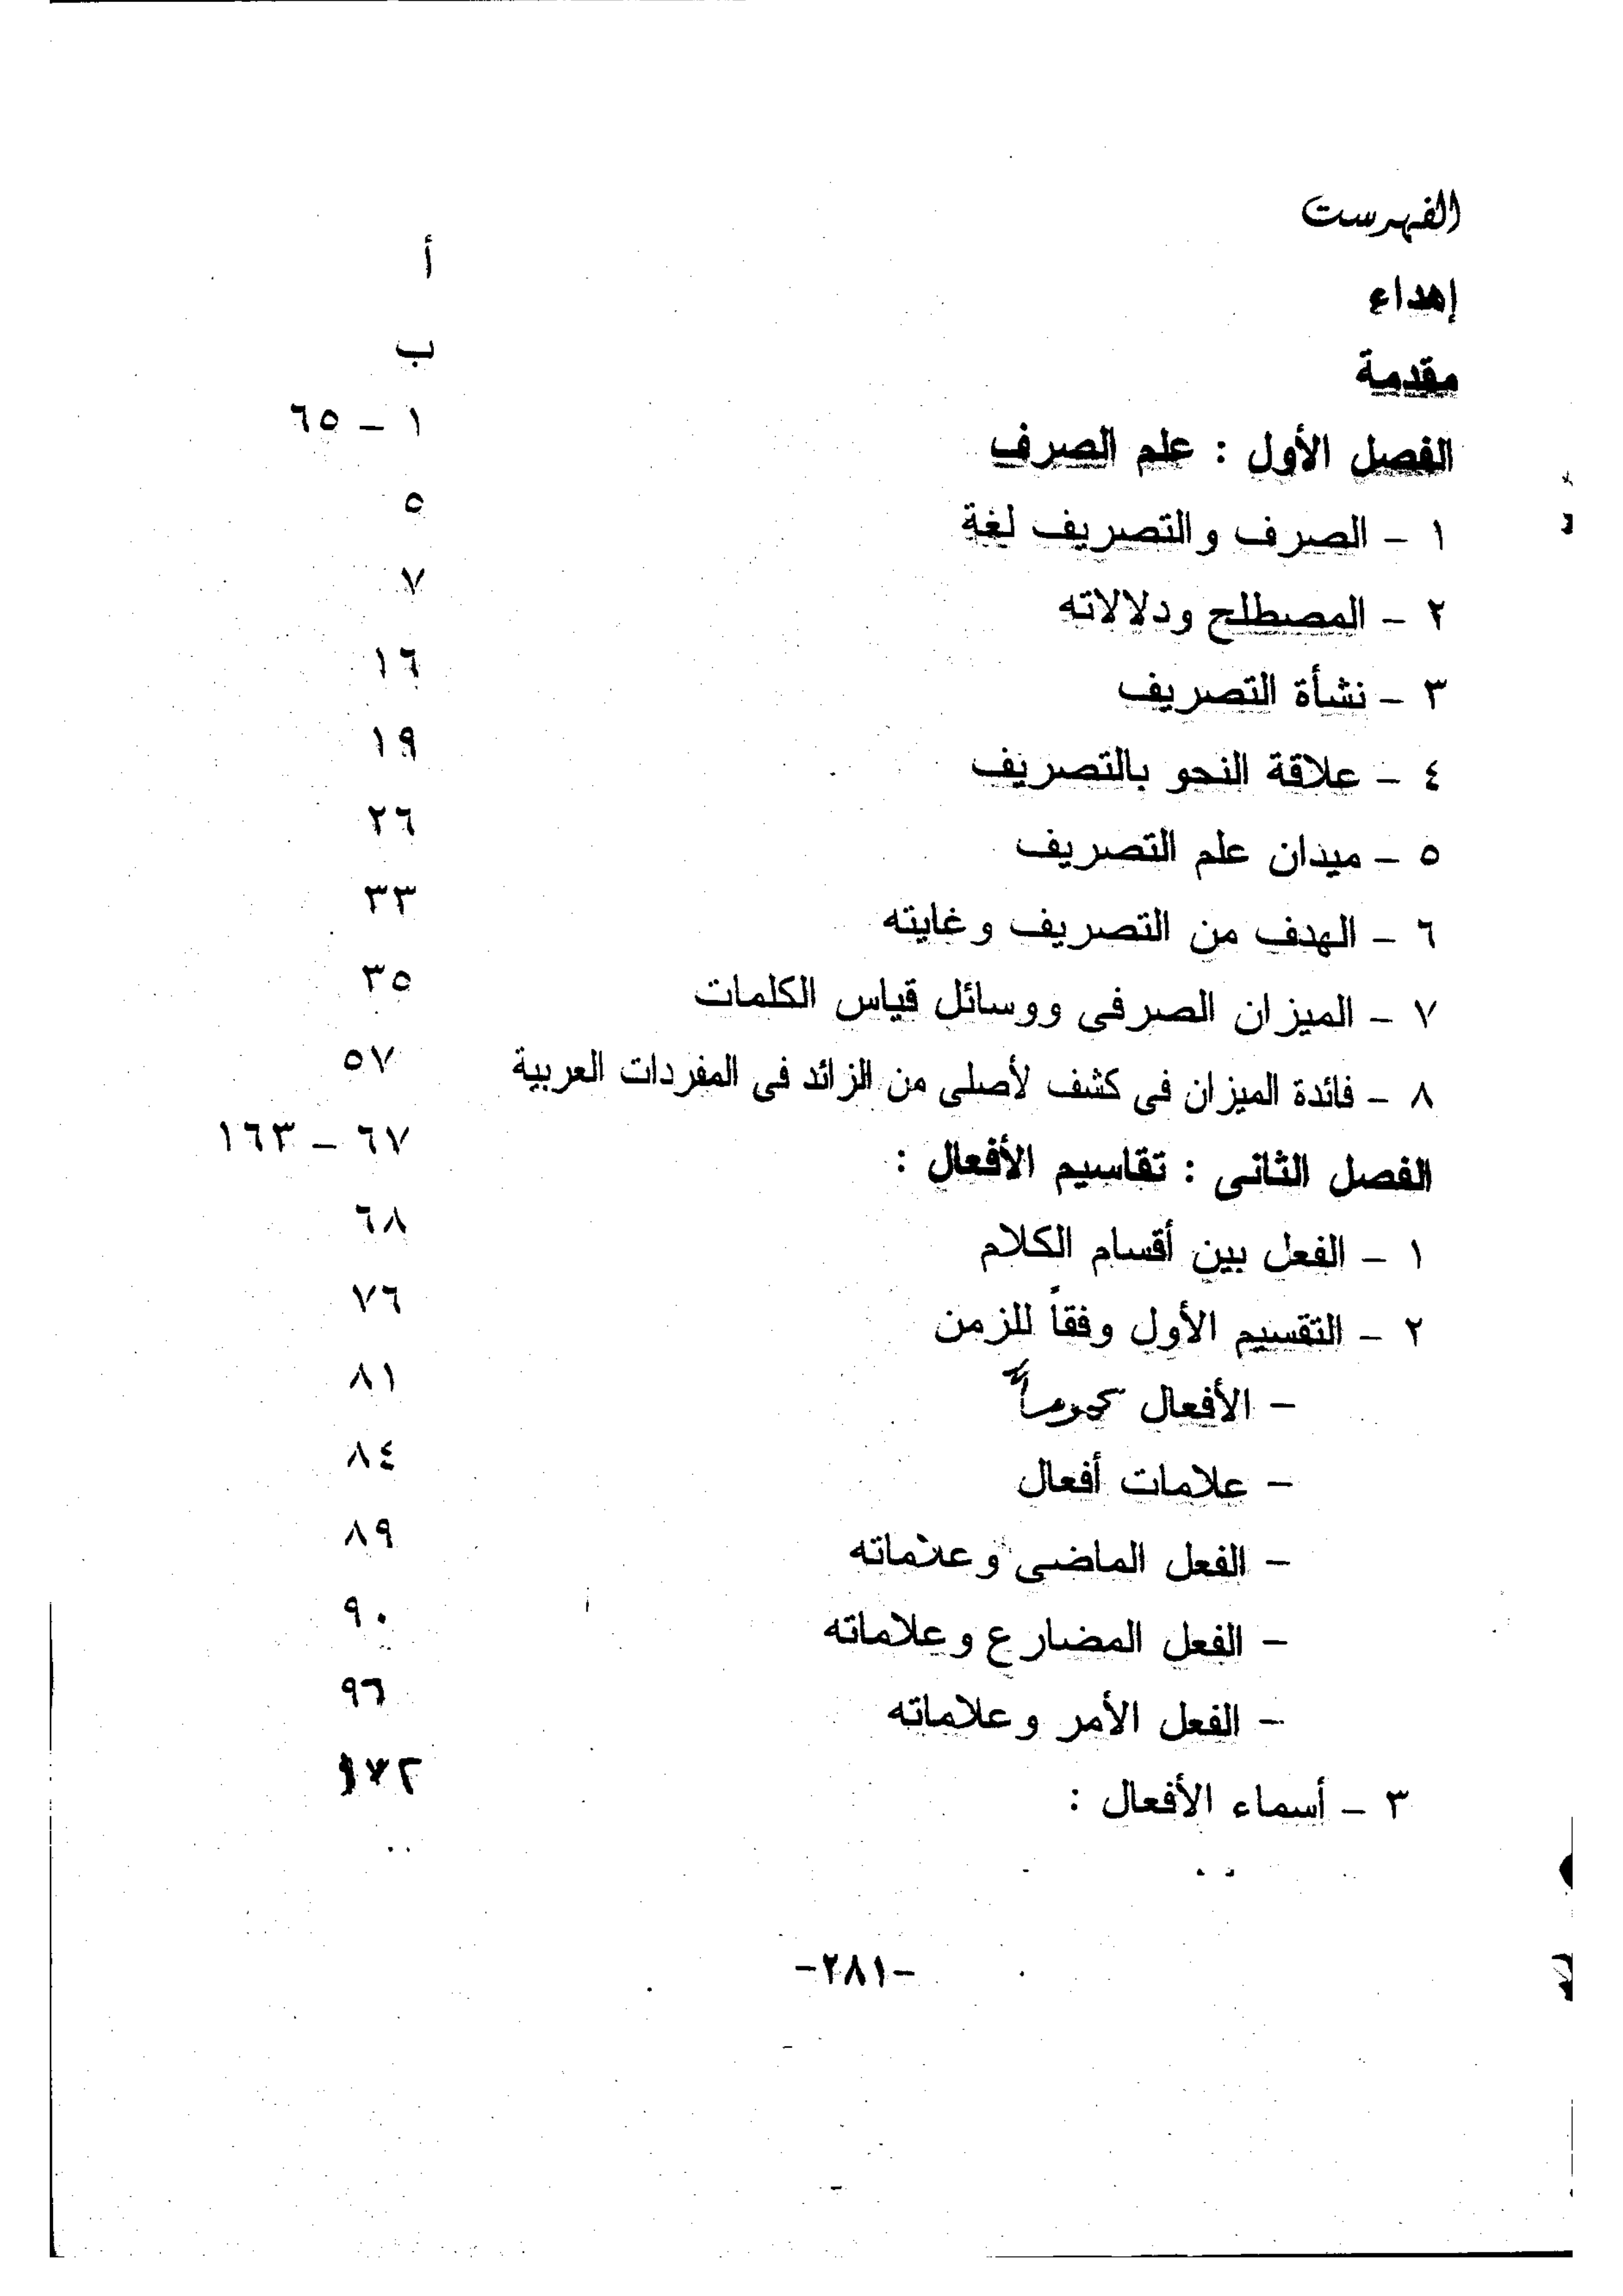 الفهرست
إهداء أ
مقدمة ب
الفصل الأول : علم الصرف ١ – ٦٥
١ – الصرف والتصريف لغة ٥
٢ – المصطلح ودلالاته ٧
٣ – نشأة التصريف ١٦
٤ – علاقة النحو بالتصريف ١٩
٥ – ميدان علم التصريف ٢٦
٦ – الهدف من التصريف وغايته ٣٣
٧ – الميزان الصرفى ووسائل قياس الكلمات ٣٥
٨ – فائدة الميزان فى كشف لأصلى من الزائد فى المفردات العربية ٥٧
الفصل الثانى : تقاسيم الأفعال : ٦٧ – ١٦٣
١ – الفعل بين أقسام الكلام ٦٨
٢ – التقسيم الأول وفقاً للزمن ٧٦
– الأفعال ٨١
– علامات أفعال ٨٤
– الفعل الماضى وعلاماته ٨٩
– الفعل المضارع وعلاماته ٩٠
– الفعل الأمر وعلاماته ٩٦
٣ – أسماء الأفعال :
-٢٨١-